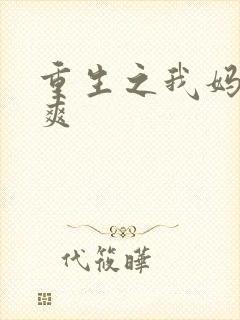 重生之我妈
爽
代筱晔